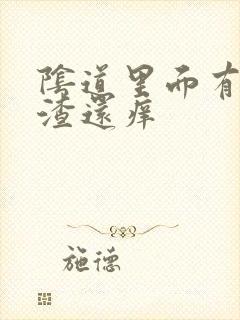 陰道里而有
渣還痒
施德